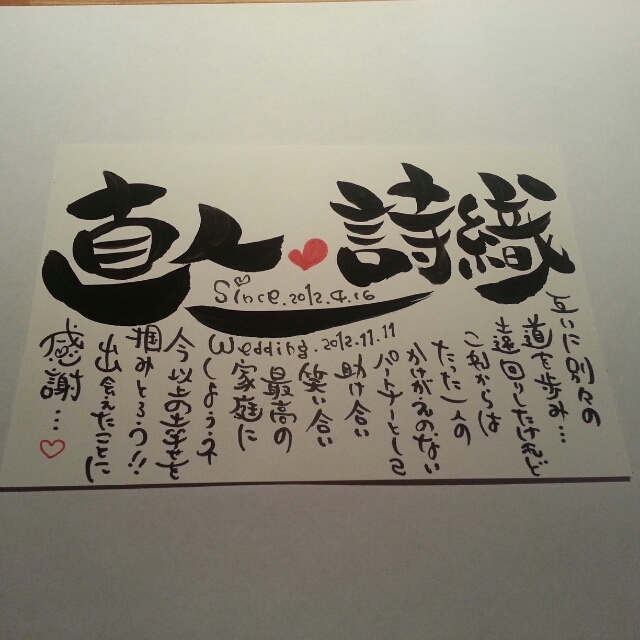 直人♥詩織
Since.2012.4.16
Wedding.2012.11.11
互いに別々の
道を歩み…
遠回りしたけれど
これからは
たった一人の
かけがえのない
パートナーとして
助け合い
笑い合い
最高の
家庭に
しようネ
今以上の幸せを
掴みとろう!!
出会えたことに
感謝…♡